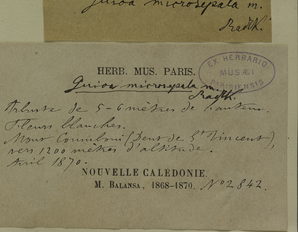 Guioa microsepala m.
Radlk.
HERB. MUS. PARIS.
EX HERBARIO
MUSÆI
PARISIENSIS
Guioa microsepala m.
Radlk.
Arbuste de 5-6 mètres de hauteur
Fleurs blanches.
Mont (Dent de St Vincent),
vers 1200 mètres d'altitude.
Avril 1870.
NOUVELLE CALÉDONIE.
M. BALANSA, 1868-1870. No 2842.